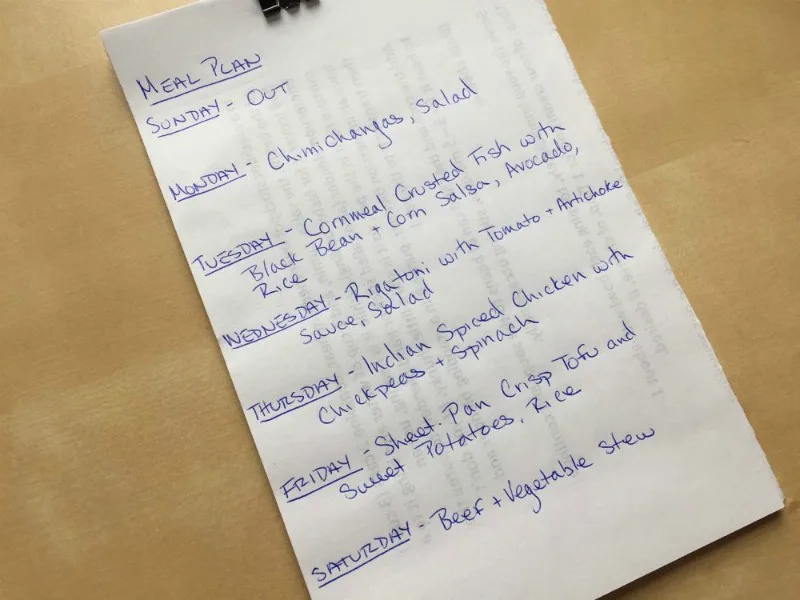 MEAL PLAN
SUNDAY - OUT
MONDAY - Chimichangas, Salad
TUESDAY - Cornmeal Crusted Fish with
Black Bean + Corn Salsa, Avocado,
Rice
WEDNESDAY - Rigatoni with Tomato + Artichoke
Sauce, Salad
THURSDAY - Indian Spiced Chicken with
Chickpeas + Spinach
FRIDAY - Sheet Pan Crisp Tofu and
Sweet Potatoes, Rice
SATURDAY - Beef + Vegetable Stew